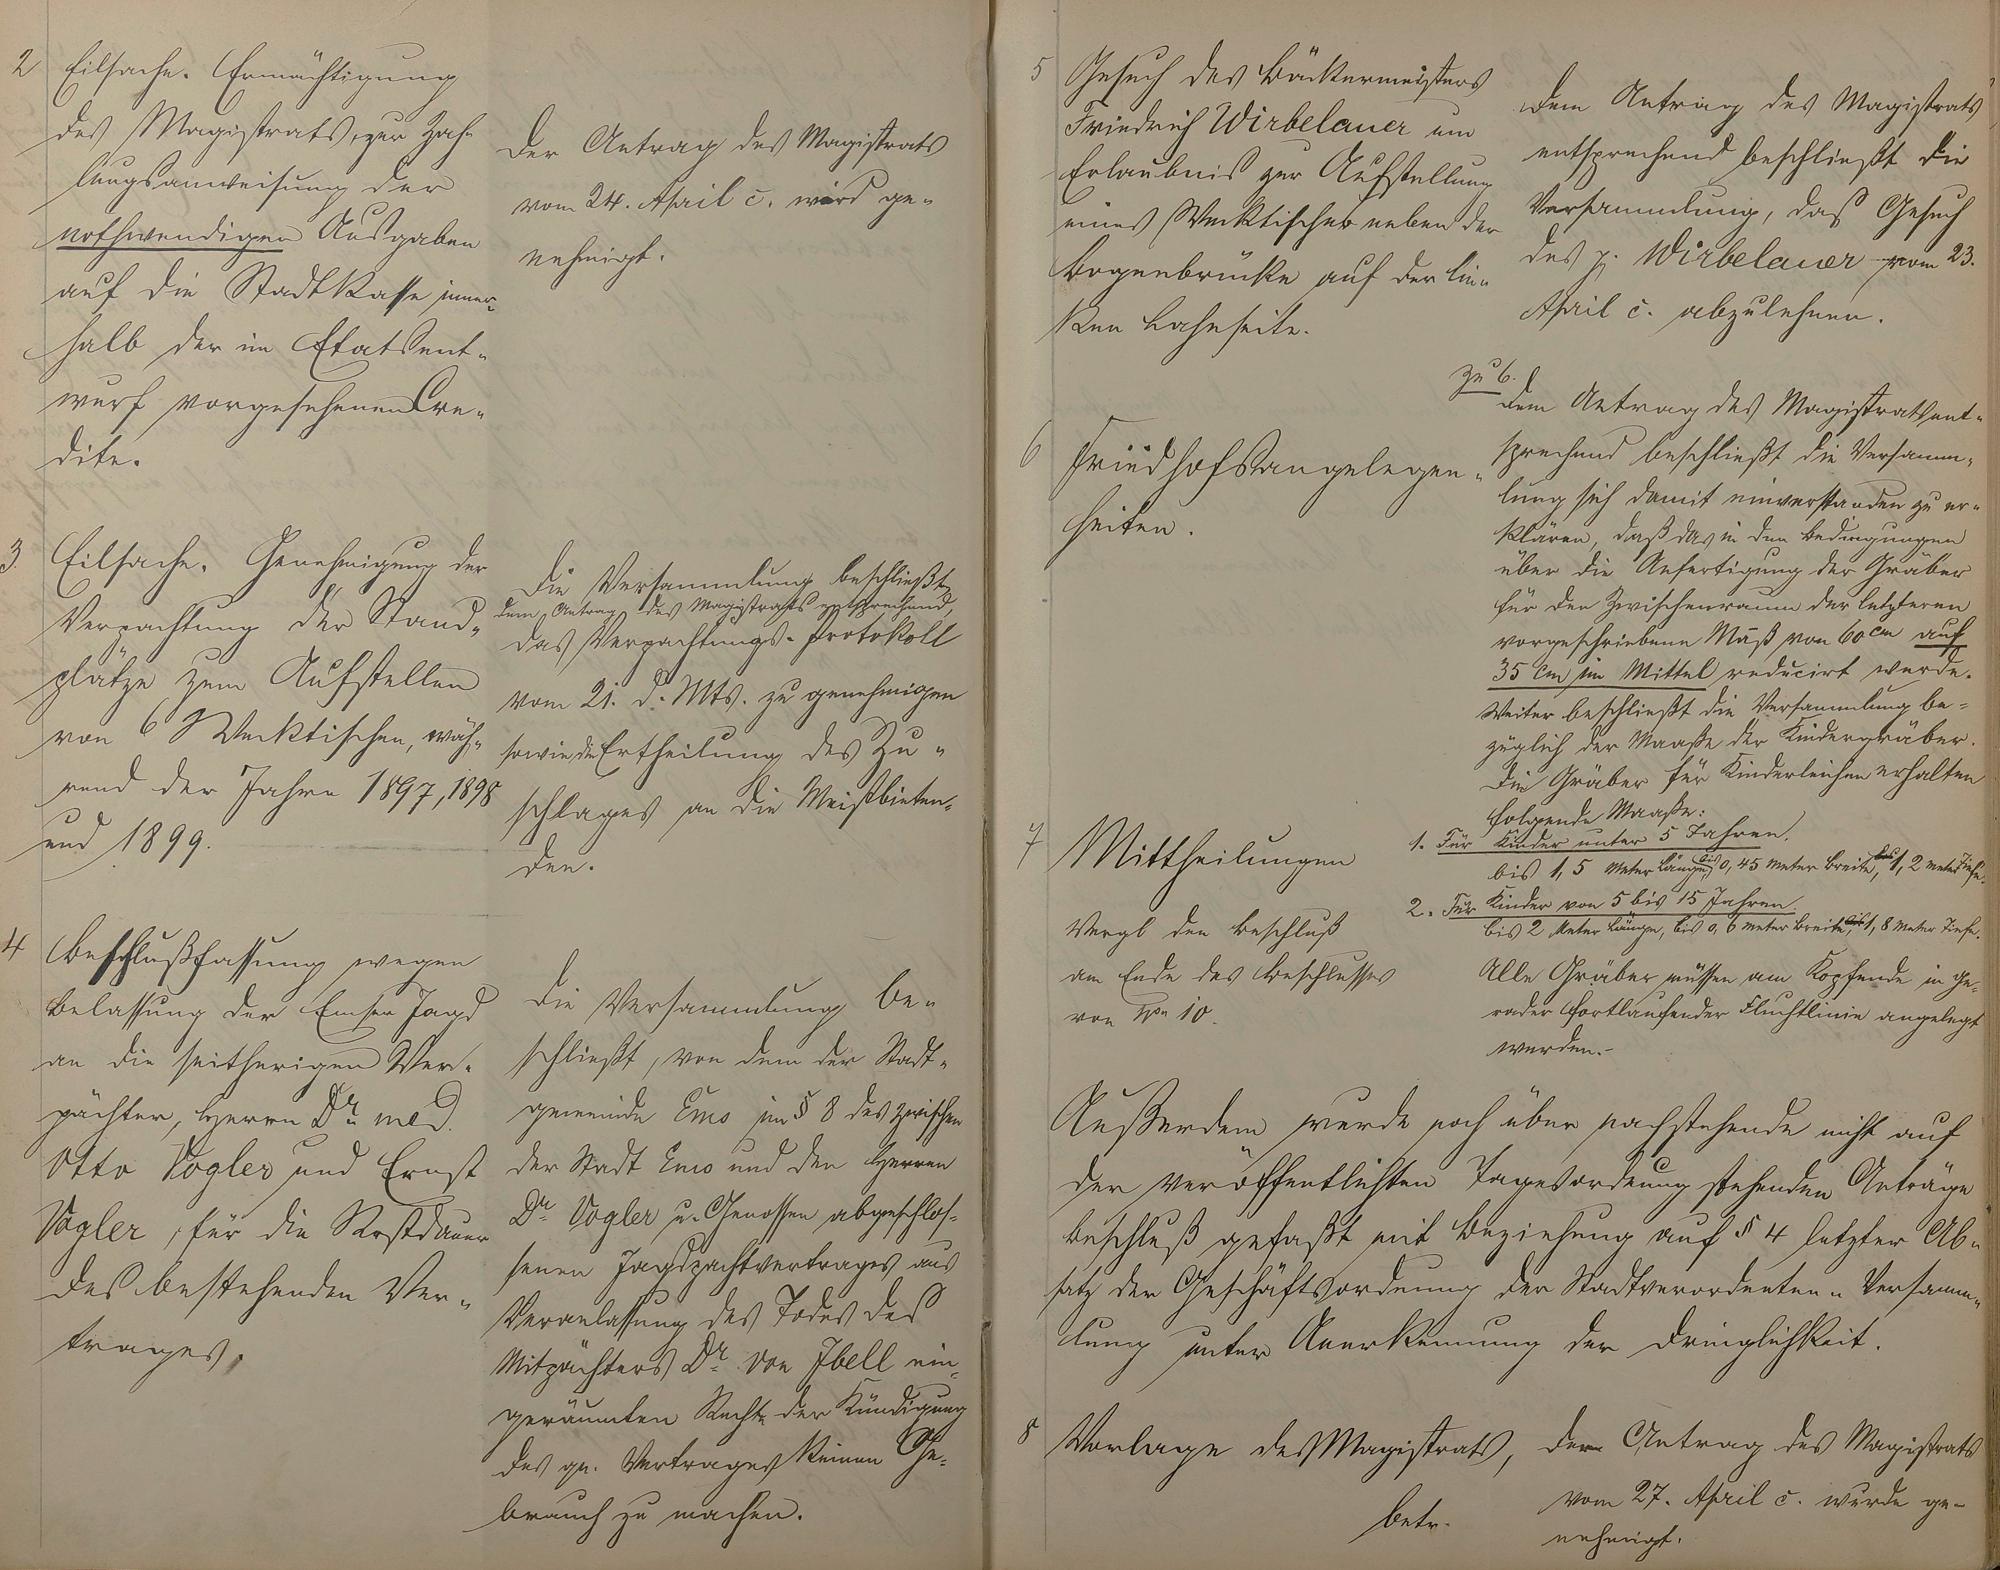 2 Eilsache. Ermächtigung
des Magistrats, zur Zah-
lungsanweisung der
nothwendigen Ausgaben
auf die Stadtkasse inner-
halb der im Etatsent-
wurf vorgesehenen Cre-
dite.
Der Antrag des Magistrats
vom 24. April c. wird ge-
nehmigt.
3. Eilsache. Genehmigung der
Verpachtung der Stand-
plätze zum Aufstellen
von 6 Wecktischen, wäh-
rend der Jahre 1897, 1898
und 1899.
Die Versammlung beschließt,
dem Antrag des Magistrats entsprechend,
das Verpachtungs-Protokoll
vom 21. d. Mts. zu genehmigen
sowie die Ertheilung des Zu-
schlages an die Meistbieten-
den.
4 Beschlußfassung wegen
Belassung der Emser Jagd
an die seitherigen Ver-
pächter, Herrn Dr. med.
Otto Vogler und Ernst
Vogler, für die Restdauer
des bestehenden Ver-
trages.
Die Versammlung be-
schließt, von dem der Stadt-
gemeinde Ems im § 8 des zwischen
der Stadt Ems und den Herren
Dr. Vogler u. Genossen abgeschlos-
senen Jagdpachtvertrages aus
Veranlassung des Todes des
Mitpächters Dr. von Ibell ein-
geräumten Recht der Kündigung
des gn. Vertrages keinen Ge-
brauch zu machen.
5 Gesuch des Bäckermeisters
Friedrich Wirbelauer um
Erlaubnis zur Aufstellung
eines Wecktisches neben der
Bogenbrücke auf der lin-
ken Lahnseite.
Dem Antrag des Magistrats
entsprechend beschließt die
Versammlung, das Gesuch
des p. Wirbelauer vom 23.
April c. abzulehnen.
6 Friedhofsangelegen-
heiten.
zu 6.
Dem Antrag des Magistrats ent-
sprechend beschließt die Versamm-
lung sich damit einverstanden zu er-
klären, daß das in den Bedingungen
über die Anfertigung der Gräber
für den Zwischenraum der letzteren
vorgeschriebene Maß von 60 cm auf
35 cm im Mittel reducirt werde.
Weiter beschließt die Versammlung be-
züglich der Maaße der Kindergräber.
Die Gräber für Kinderleichen erhalten
folgende Maaße:
1. Für Kinder unter 5 Jahren.
bis 1,5 Meter Länge, bis 0,45 Meter Breite, 1,2 Meter Tiefe.
2. Für Kinder von 5 bis 15 Jahren.
bis 2 Meter Länge, bis 0,6 Meter Breite, 1,8 Meter Tiefe.
Alle Gräber müssen am Kopfende in ge-
rader fortlaufender Fluchtlinie angelegt
werden.-
7 Mittheilungen
Vergl den Beschluß
am Ende des Beschlusses
von No 10.
Außerdem wurde noch über nachstehende nicht auf
der veröffentlichten Tagesordnung stehenden Anträge
Beschluß gefaßt mit Beziehung auf § 4 letzter Ab-
satz der Geschäftsordnung der Stadtverordneten-Versamm-
lung unter Anerkennung der Dringlichkeit.
8 Vorlage des Magistrats,
betr.
Der Antrag des Magistrats
vom 27. April c. wurde ge-
nehmigt.